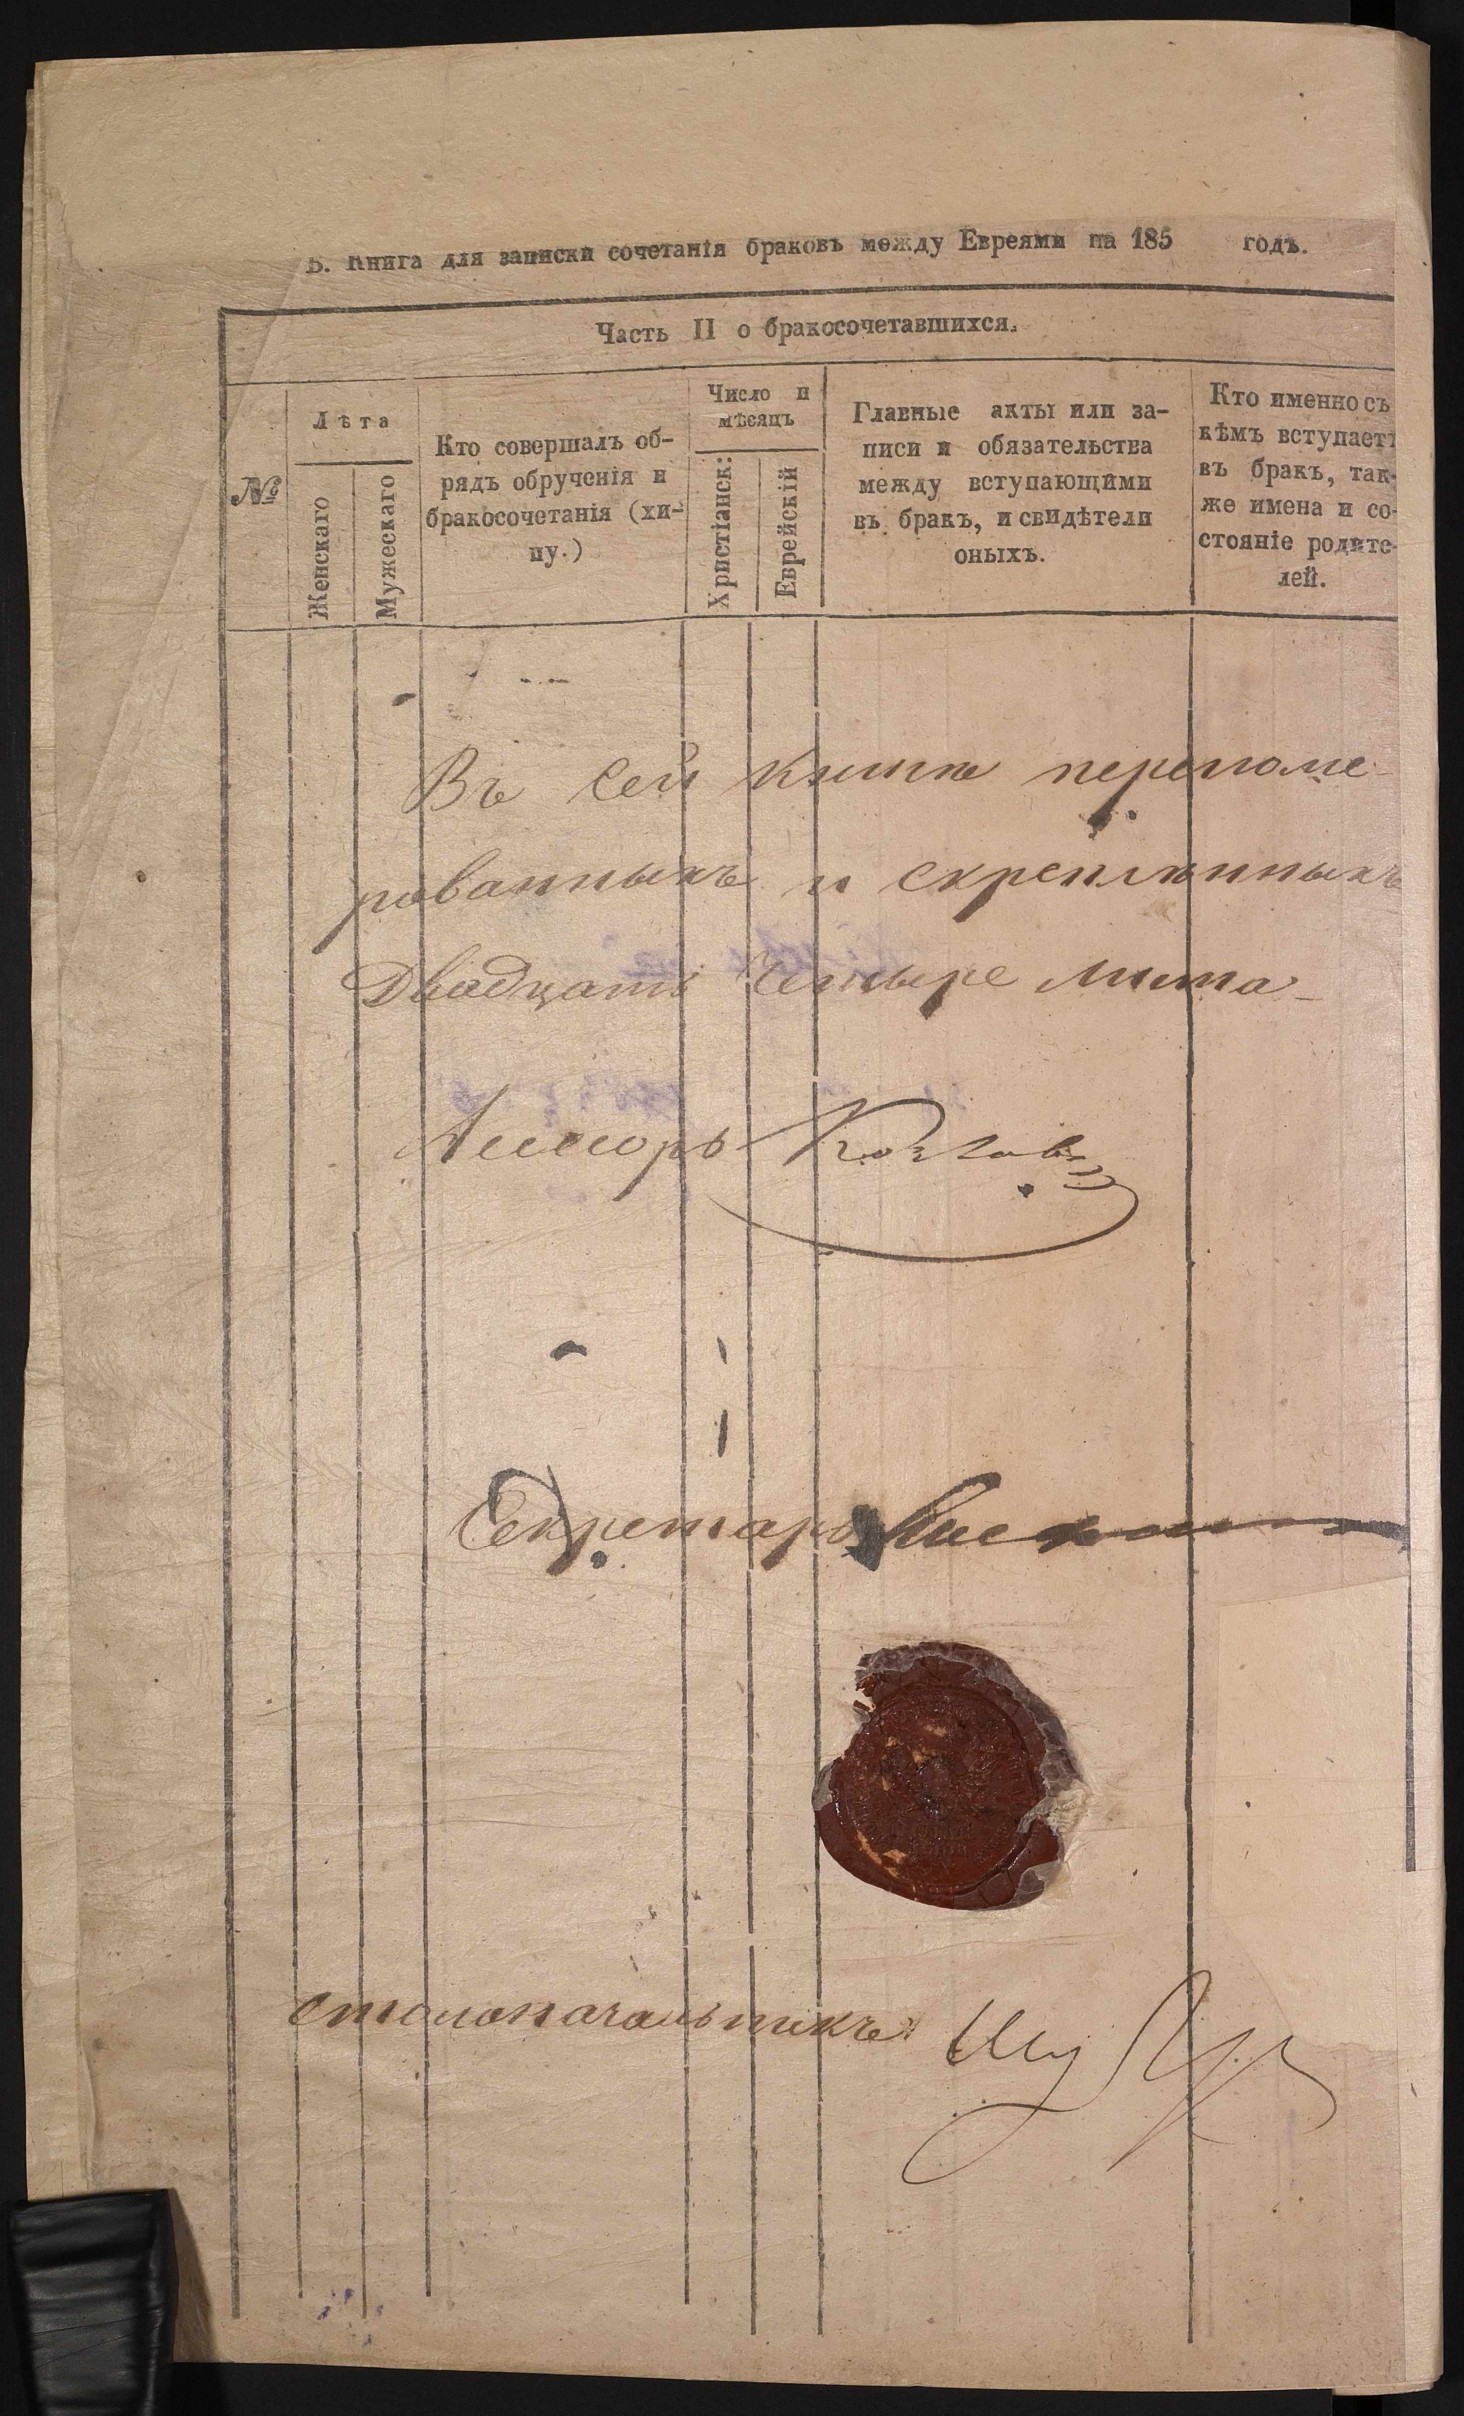 Б. Книга для записки сочетанія браковъ между Евреями на 185 годъ.
Часть II о бракосочетавшихся.
№
Лѣта
Женскаго
Мужескаго
Кто совершалъ об-
рядъ обрученія и
бракосочетанія (хи-
пу.)
Число и
мѣсяцъ
Христіанск:
Еврейскій
Главные акты или за-
писи и обязательства
между вступающими
въ бракъ, и свидѣтели
оныхъ.
Кто именно съ
кѣмъ вступаетъ
въ бракъ, так-
же имена и со-
стояніе родите-
лей.
Въ сей книге переноме-
рованныхъ и скрепленныхъ
Двадцать Четыре листа
Ассесоръ Козловъ
Секретарь
Столоначальникъ